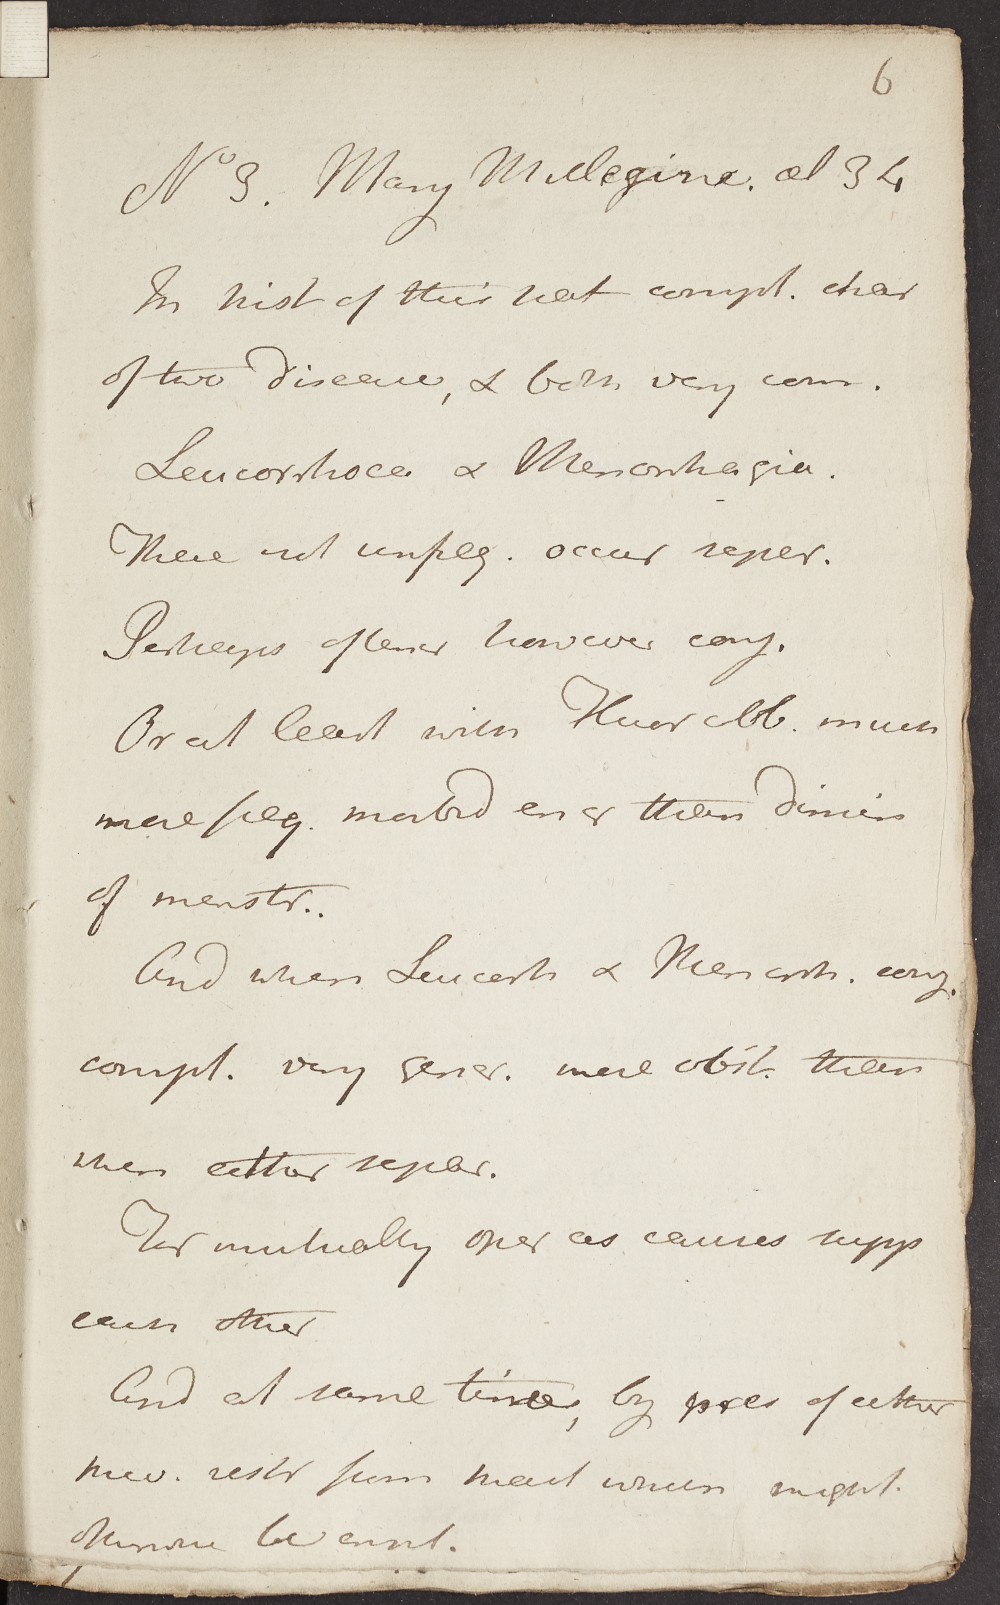 6
No 3. Mary Millegine. æt 34
In hist of this pat compl. char
of two Diseases, & both very com.
Leucorrhoea & Menorrhagia.
These not unfreq. occur separ.
Perhaps oftener however conj.
Or at least with Fluor alb. much
more freq. morbid encr than Dimin
of menstr..
And when Leucorrh & Menorrh. conj.
compl. very gener. more obst. than
when either separ.
For mutually oper as causes supp
each other
And at same time, by pres of either
restr from which might.
otherwise be empl.